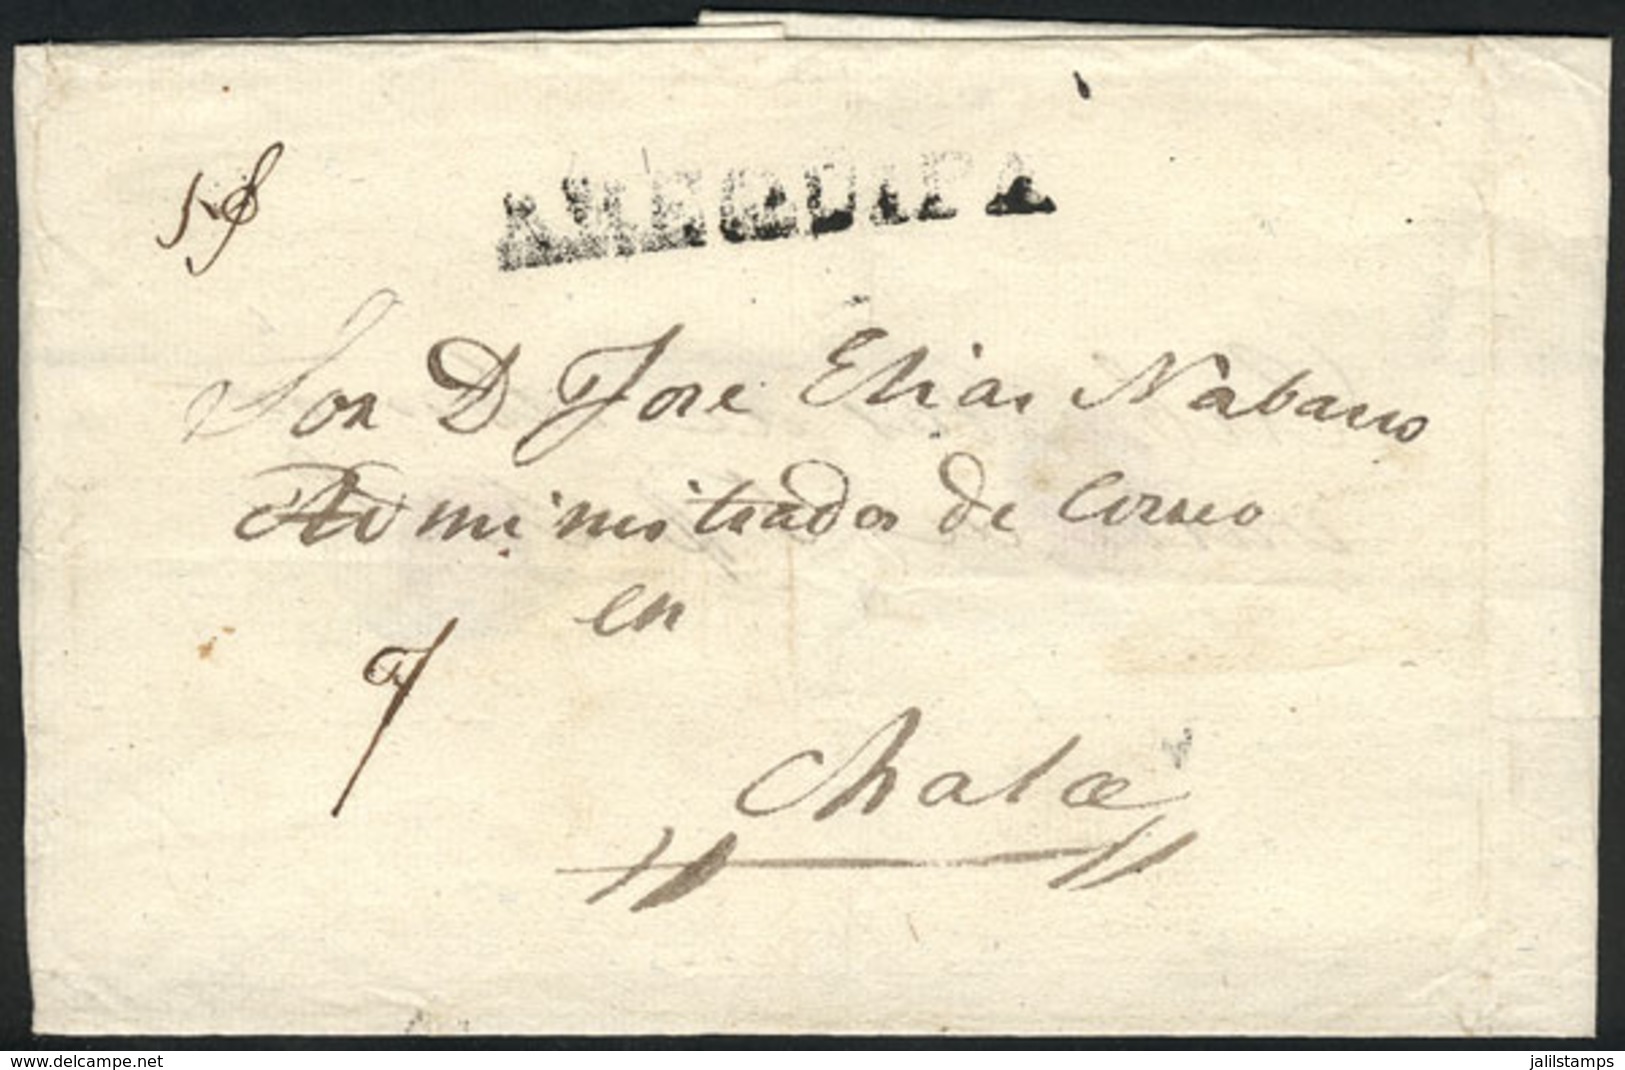 AREQUIPA
Sor D Jose Elias Nabarro
Administrador de Correo
en
Chala
www.delcampe.net
jalilstamps